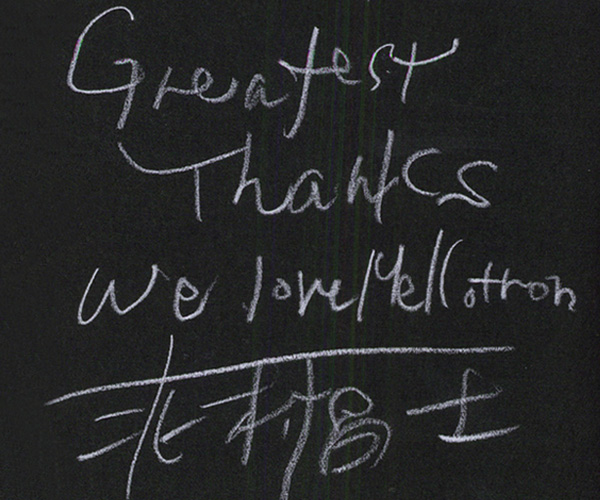 Greatest
Thanks
We love Mellotron
北村昌士